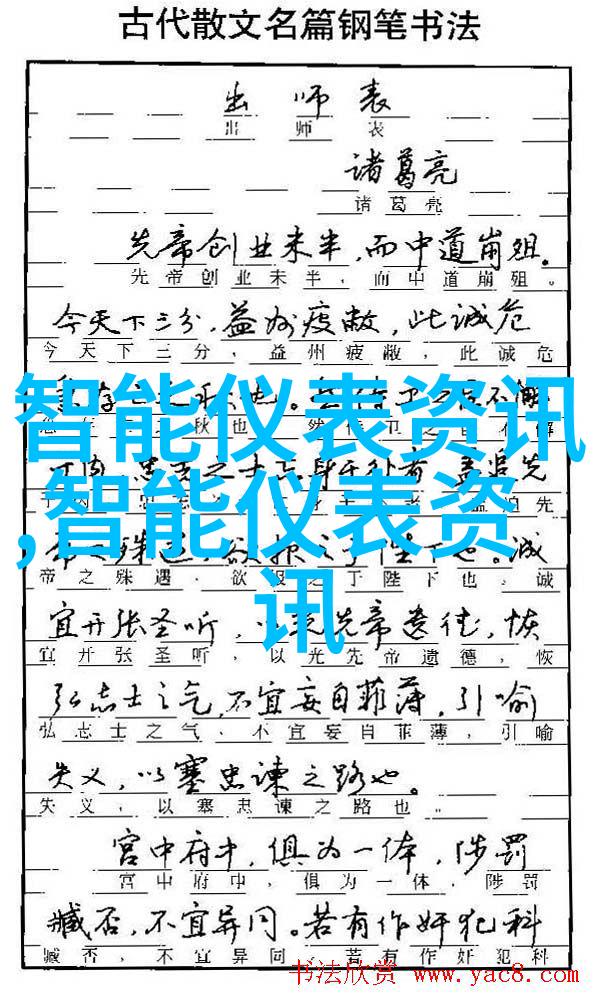 古代散文名篇钢笔书法
出师表
出师表
诸葛亮
诸葛亮
先帝创业未半,而中道崩殂。
先帝创业未半,而中道崩殂。
今天下三分,益州疲敝,此诚危
今天下三分,益州疲敝,此诚危
智能仪表资讯
秋也
,智能仪表资
盖追先
讯
帝之殊遇,欲报之于陛下也。诚
帝之殊遇,欲报之于陛下也,诚
宜开张圣听,以光先帝遗德,恢
宜开张圣听,以光先帝遗德,恢
弘志士之气,不宜妄自菲薄,引喻
弘志士之气,不宜妄自菲薄,引喻
失义,以塞忠谏之路也。
失义,以塞忠谏之路也。
宫中府中,俱为一体,陟罚
宫中府中,俱为一体,陟罚
臧否,不宜异同。若有作奸犯科
臧否,不宜异同。若有作奸犯科
书法欣赏 www.yac8.com